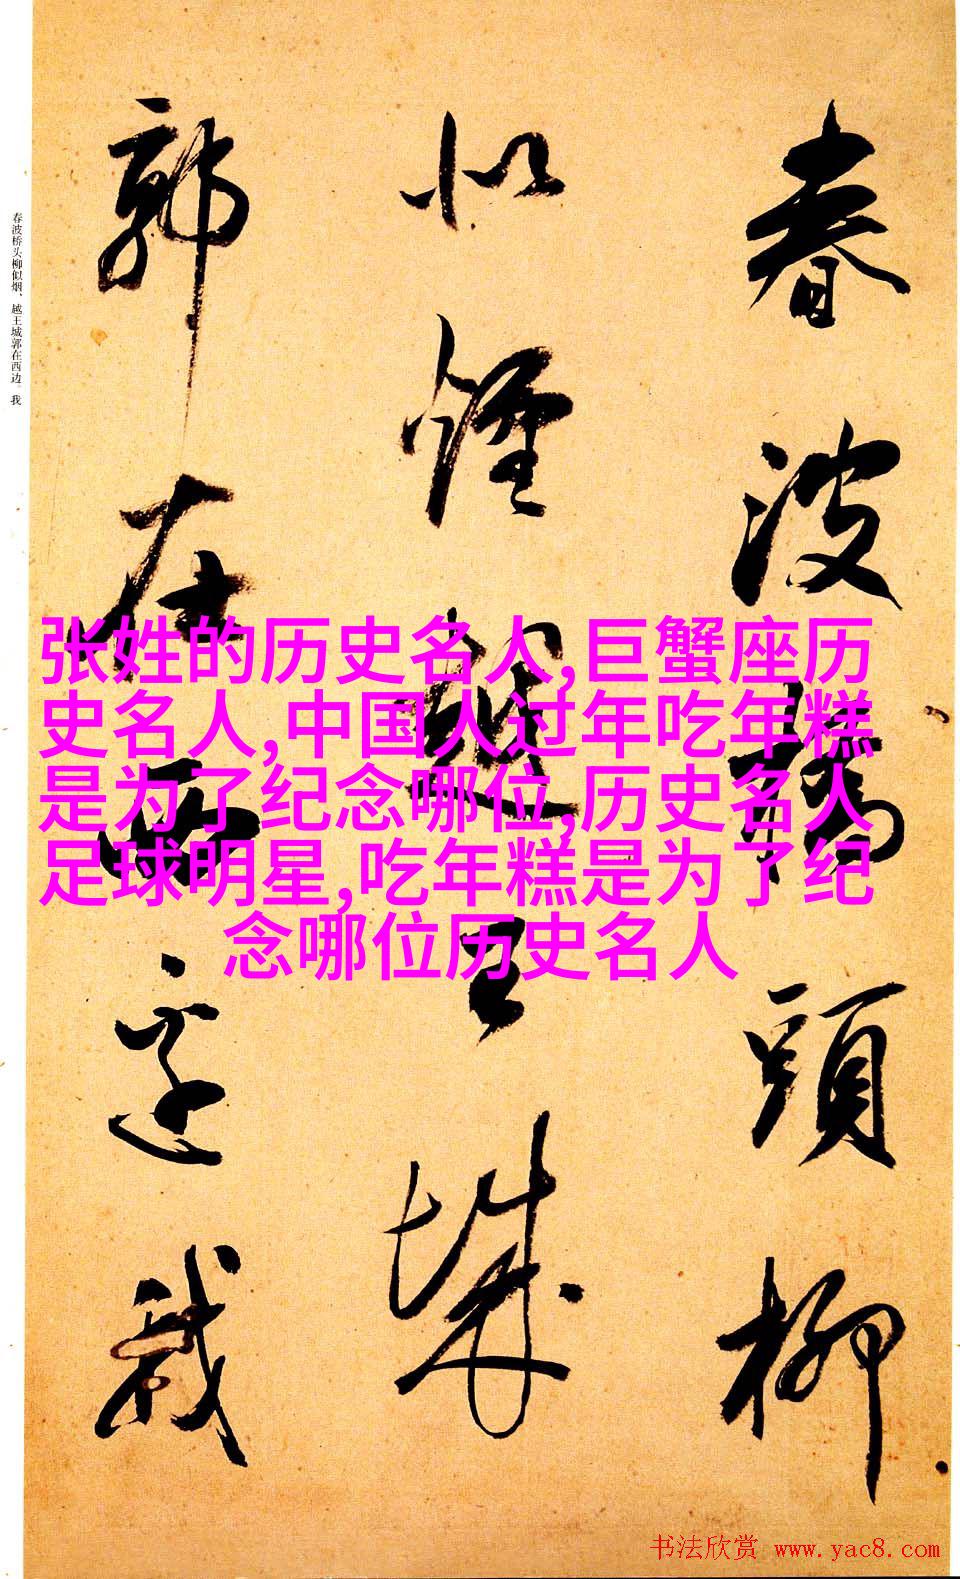 春波橋頭柳
似煙越王城
郭在西邊我
春波桥头柳似烟、越王城郭在西边。我
张姓的历史名人,巨蟹座历
史名人,中国人过年吃年糕
是为了纪念哪位,历史名人
足球明星,吃年糕是为了纪
念哪位历史名人
书法欣赏 www.yac8.com